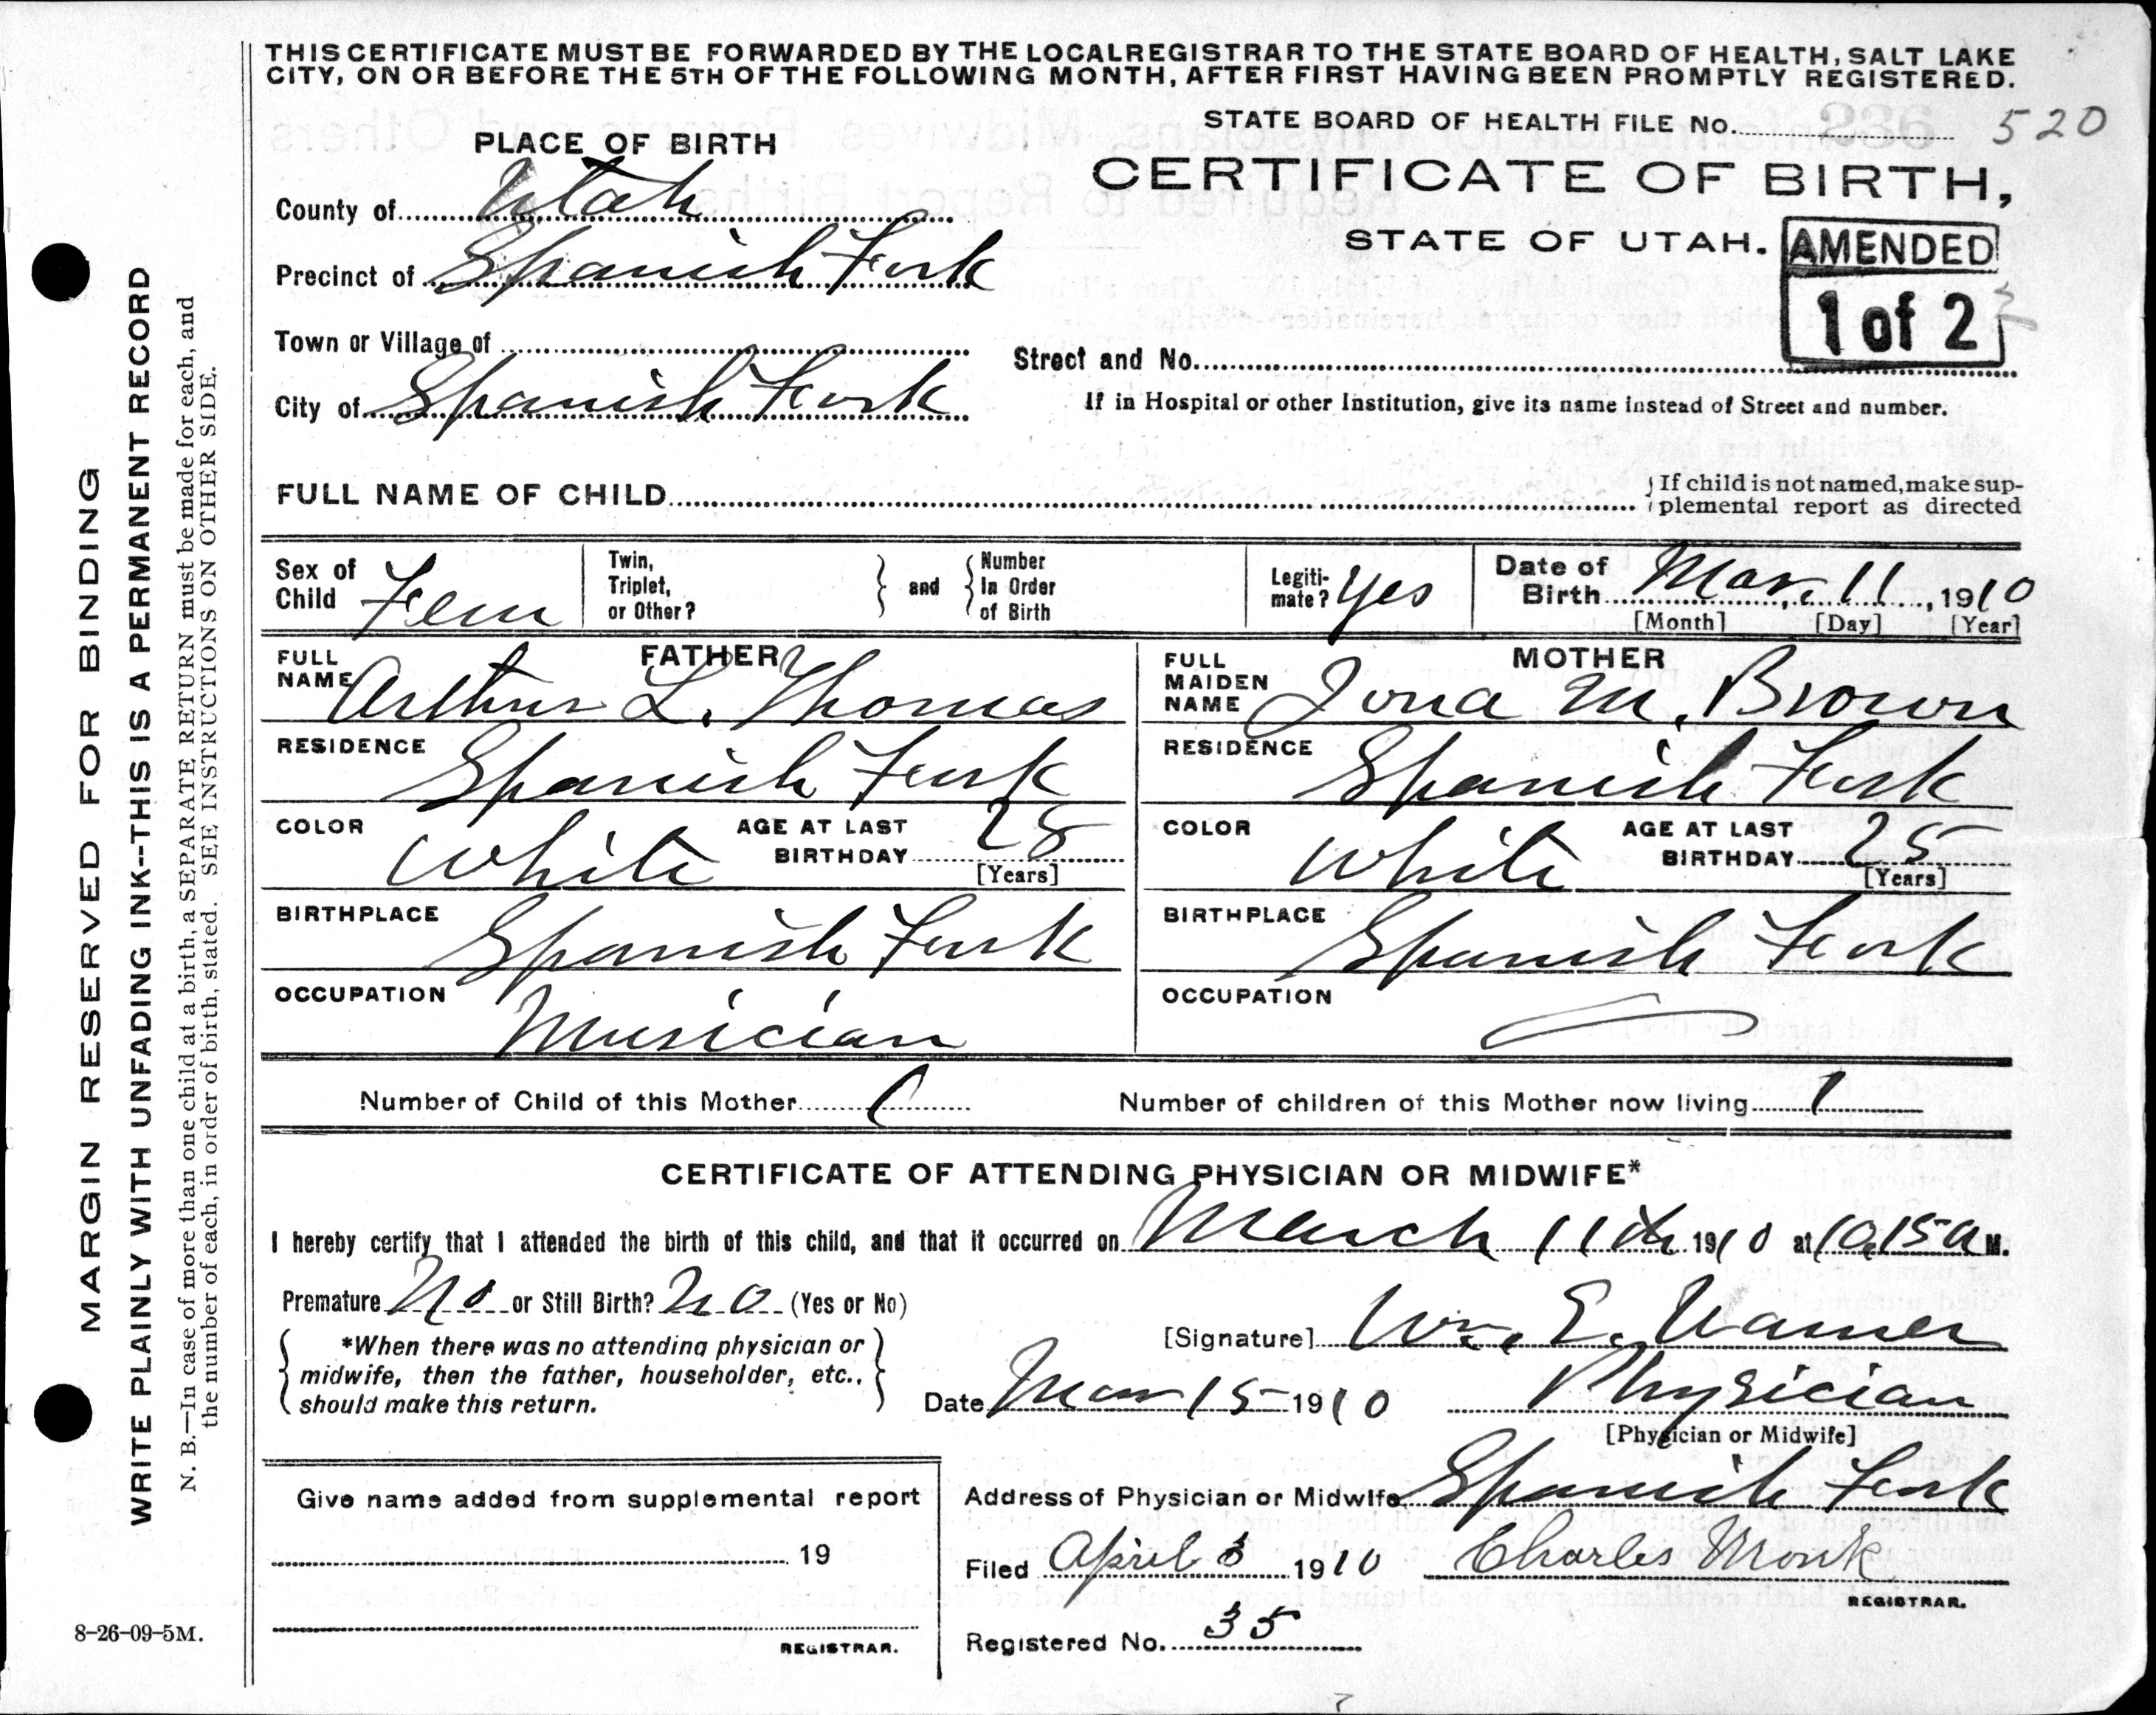 THIS CERTIFICATE MUST BE FORWARDED BY THE LOCAL REGISTRAR TO THE STATE BOARD OF HEALTH, SALT LAKE
CITY, ON OR BEFORE THE 5TH OF THE FOLLOWING MONTH, AFTER FIRST HAVING BEEN PROMPTLY REGISTERED.
STATE BOARD OF HEALTH FILE No. 520
PLACE OF BIRTH
CERTIFICATE OF BIRTH,
County of Utah
STATE OF UTAH.
AMENDED
1 of 2
Precinct of Spanish Fork
Town or Village of
Street and No.
City of Spanish Fork
If in Hospital or other Institution, give its name instead of Street and number.
FULL NAME OF CHILD
If child is not named, make sup-
plemental report as directed
Sex of Child Fem
Twin, Triplet, or Other?
and
Number In Order of Birth
Legiti-mate? Yes
Date of Birth Mar. 11, 1910
[Month] [Day] [Year]
FATHER
FULL NAME Arthur L. Thomas
RESIDENCE Spanish Fork
COLOR White
AGE AT LAST BIRTHDAY 28
[Years]
BIRTHPLACE Spanish Fork
OCCUPATION Musician
MOTHER
FULL MAIDEN NAME Iona M. Brown
RESIDENCE Spanish Fork
COLOR White
AGE AT LAST BIRTHDAY 25
[Years]
BIRTHPLACE Spanish Fork
OCCUPATION
Number of Child of this Mother 1
Number of children of this Mother now living 1
CERTIFICATE OF ATTENDING PHYSICIAN OR MIDWIFE*
I hereby certify that I attended the birth of this child, and that it occurred on March 11th 1910 at 10,15 a M.
Premature No or Still Birth? No (Yes or No)
*When there was no attending physician or
midwife, then the father, householder, etc.,
should make this return.
[Signature] Wm. E. Warner
Date Mar 15 1910
Physician
[Physician or Midwife]
Give name added from supplemental report
19
REGISTRAR.
Address of Physician or Midwife Spanish Fork
Filed April 3 1910 Charles Monk
REGISTRAR.
Registered No. 35
8-26-09-5M.
MARGIN RESERVED FOR BINDING
WRITE PLAINLY WITH UNFADING INK--THIS IS A PERMANENT RECORD
N. B.—In case of more than one child at a birth, a SEPARATE RETURN must be made for each, and
the number of each, in order of birth, stated. SEE INSTRUCTIONS ON OTHER SIDE.